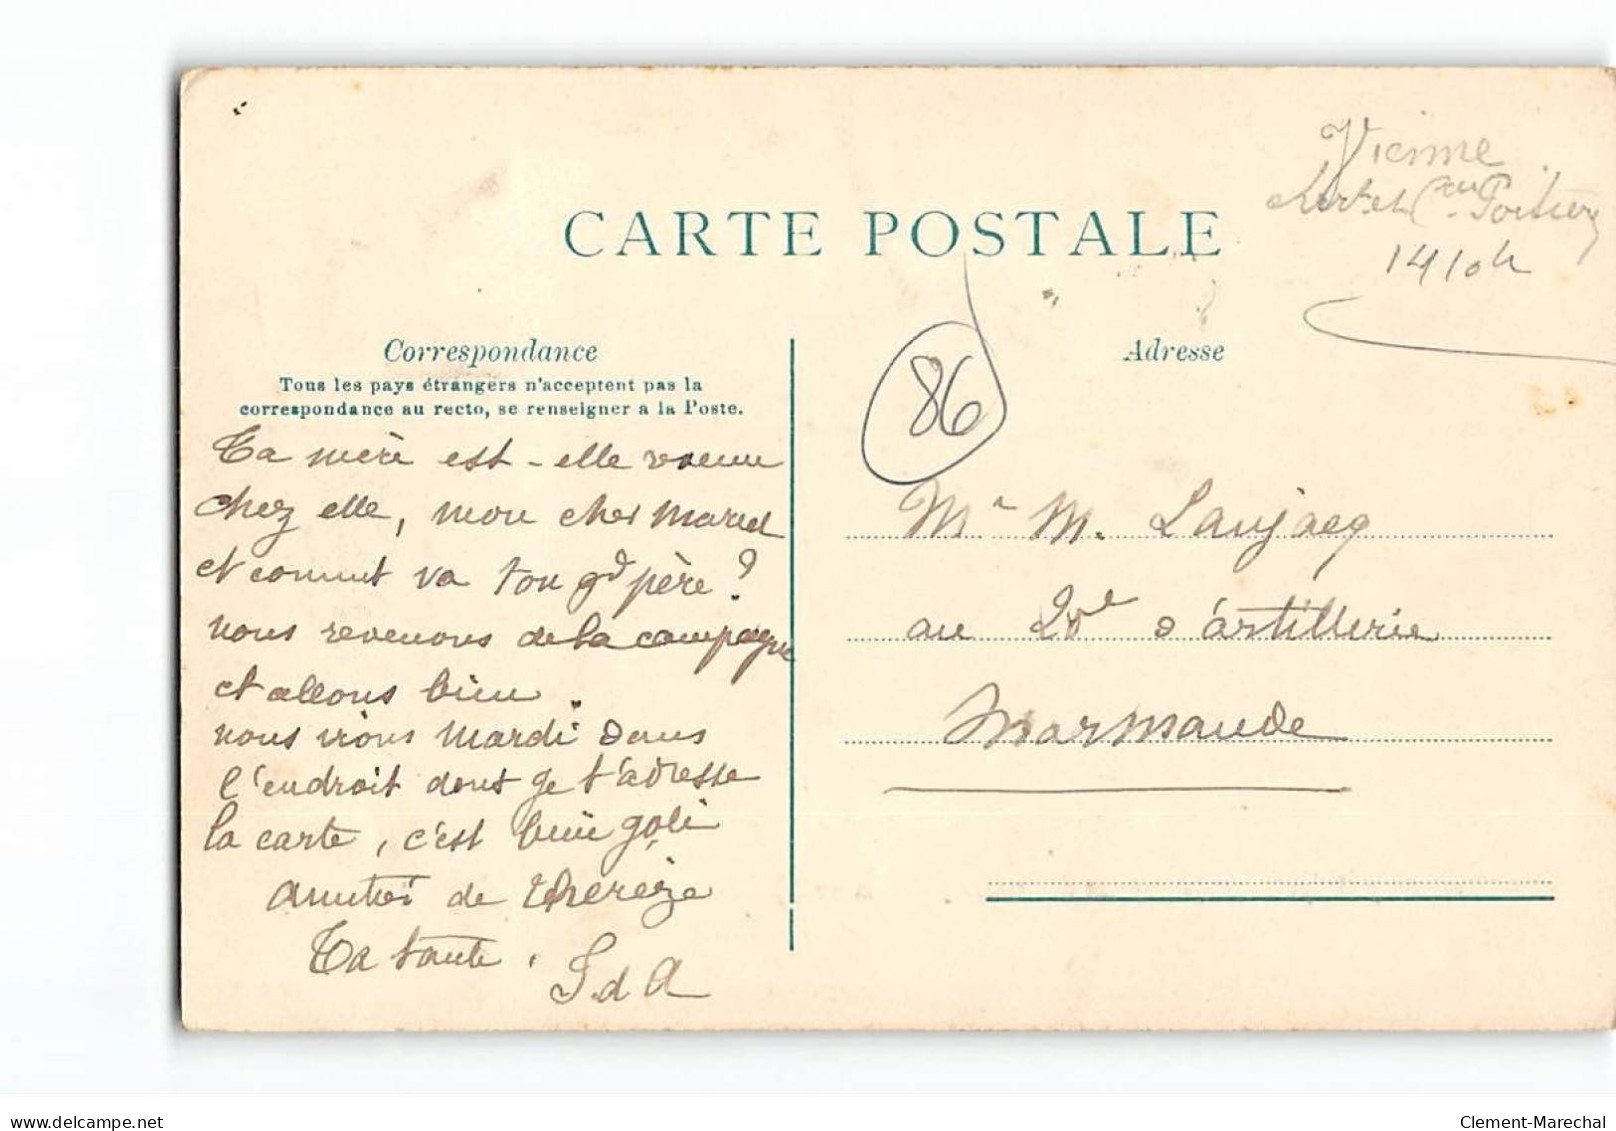 Vienne
Poitiers
CARTE POSTALE
Correspondance
Tous les pays étrangers n'acceptent pas la
correspondance au recto, se renseigner à la Poste.
86
Adresse
Ta mère est-elle venue
chez elle, mon cher Marcel
et comment va ton gd père ?
nous revenons de la campagne
et allons bien.
nous irons Mardi dans
l'endroit dont je t'adresse
la carte, c'est bien joli
Amitiés de Thérèze
Ta tante.
S. d A
Mr M. Laujacq
au 20e d'artillerie
Marmande
delcampe.net
Clement-Marechal